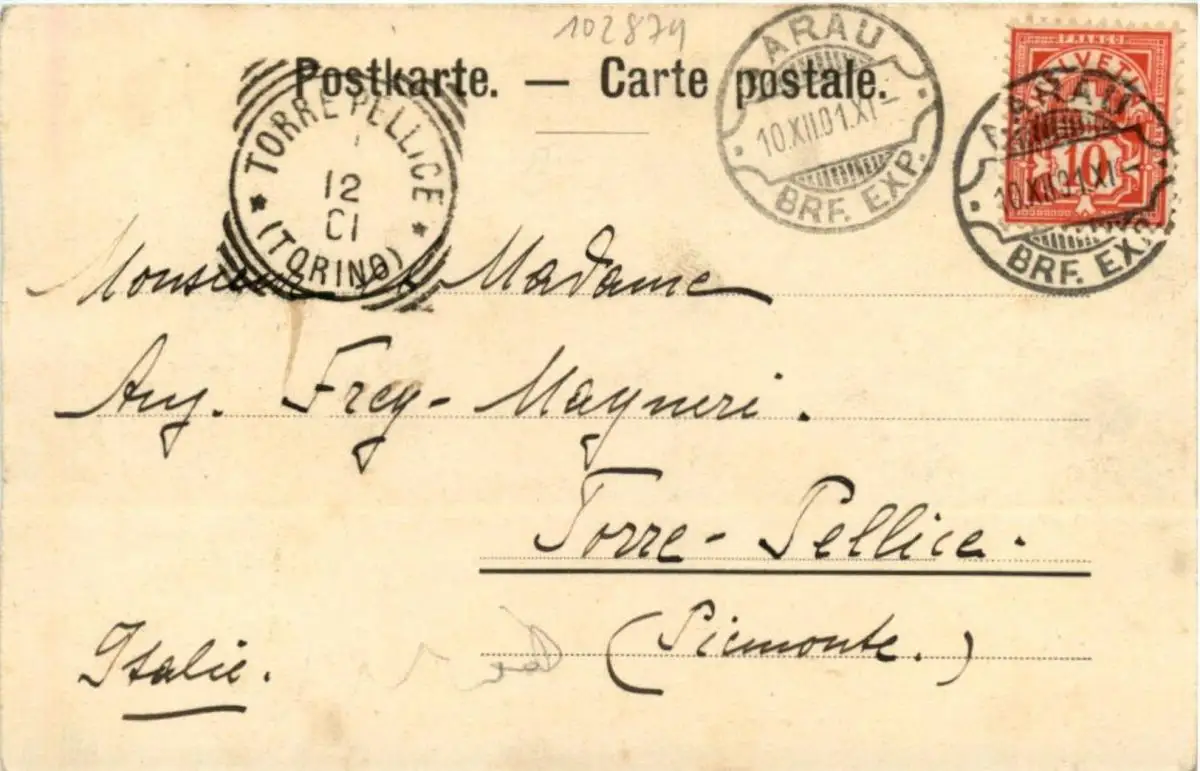 102879
Postkarte. — Carte postale.
TORRE PELLICE
12
01
(TORINO)
AARAU
10.XII.01.XI-
BRF. EXP.
FRANCO
HELVETIA
10
AARAU
10.XII.01.XI-
BRF. EXP.
Monsieur & Madame
Aug. Frey-Mayneri.
Torre-Pellice.
(Piemonte.)
Italie.